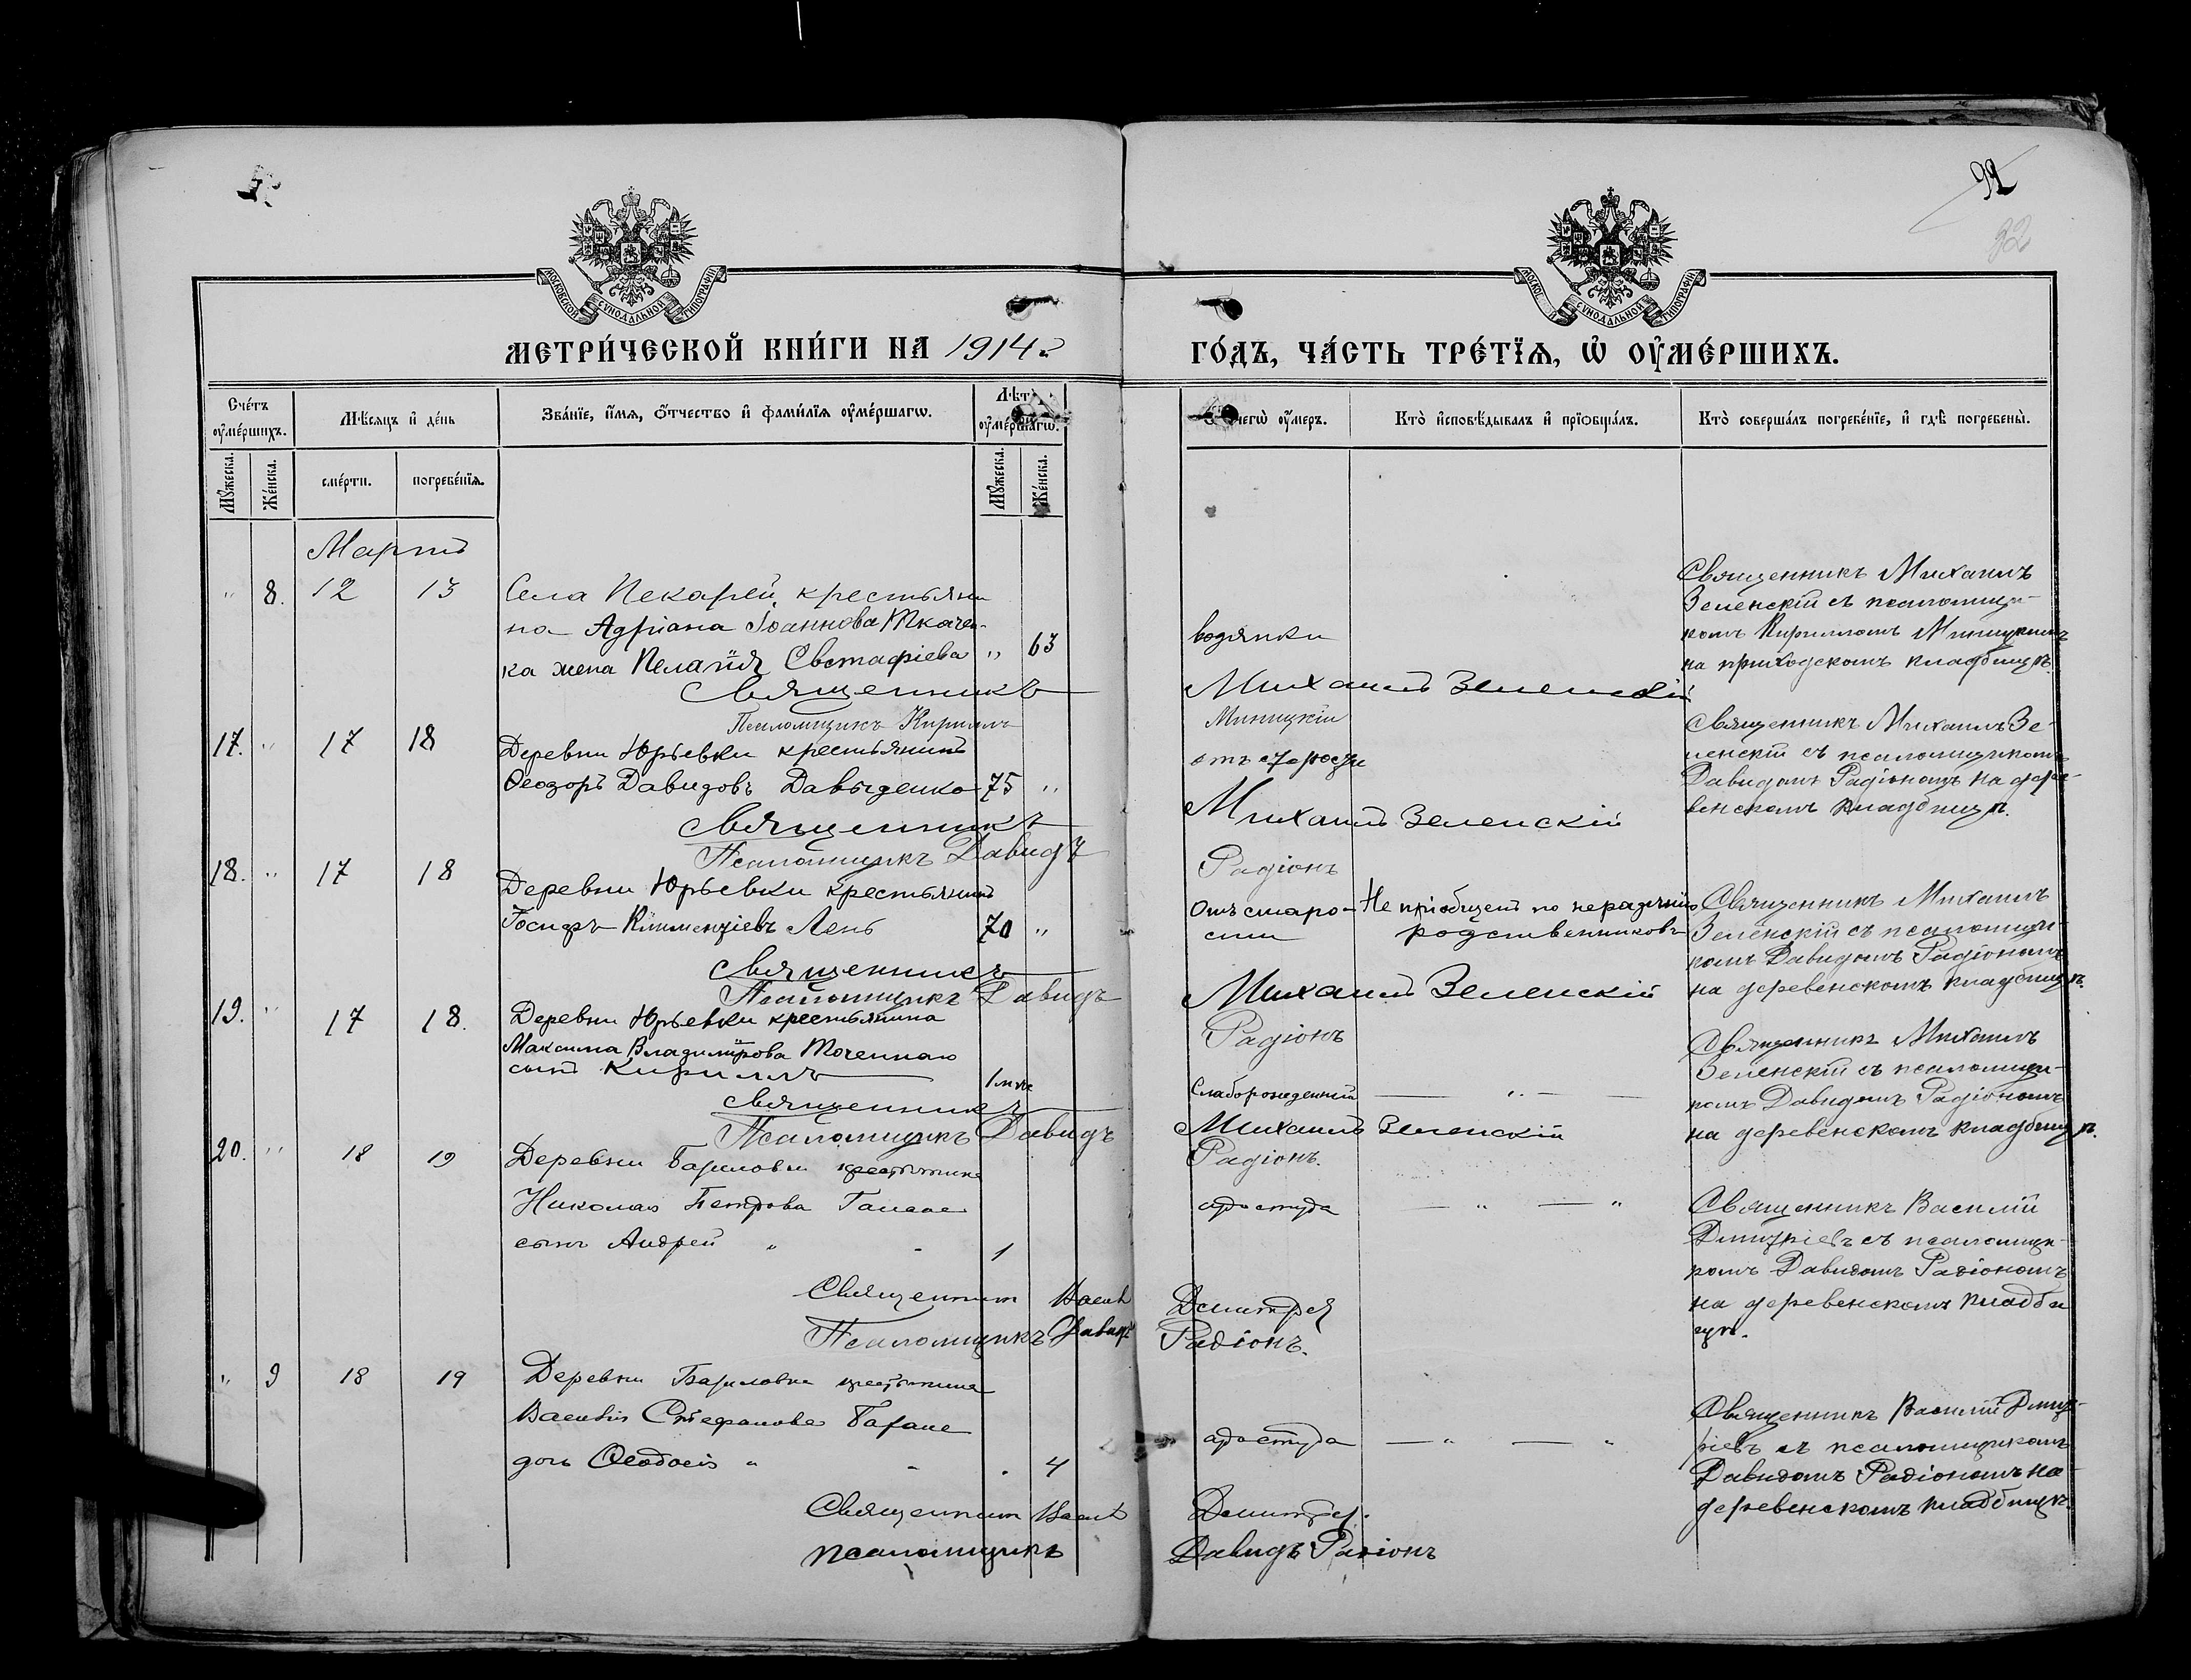 92
32
МОСКОВСКОЙ СУНОДАЛЬНОЙ ТИПОГРАФІИ
СУНОДАЛЬНОЙ ТИПОГРАФІИ
МЕТРИ́ЧЕСКОЙ КНИ́ГИ НА 1914 г.
ГО́ДЪ, ЧА́СТЬ ТРЕ́ТЇѦ, Ѡ҆ ОУ҆МЕ́РШИХЪ.
Сче́тъ оу҆ме́ршихъ.
Мѣ́сяцъ и҆ де́нь
Зва́нїе, и҆́мѧ, ѻ҆́тчество и҆ фамі́лїѧ оу҆ме́ршагѡ.
Лѣт оу҆ме́ршагѡ.
чегѡ̀ оу҆́меръ.
Кто̀ и҆сповѣ́дывалъ и҆ прїѡбща́лъ.
Кто̀ соверша́лъ погребе́нїе, и҆ гдѣ̀ погребены̀.
Мꙋ́жеска.
Же́нска.
сме́рти.
погребе́нїѧ.
Мꙋ́жеска.
Же́нска.
Мартъ
" 8. 12 13
Села Пекарей, крестьяни
на Адріана Іоаннова Ткачен-
ка жена Пелагія Евстафіева " 63
водянки
Священникъ Михаилъ
Зеленскій съ псаломщи-
комъ Кирилломъ Миницкимъ
на приходскомъ кладбищѣ.
Священникъ Михаилъ Зеленскій
Псаломщикъ Кириллъ Миницкій
17. " 17 18
Деревни Юрьевки крестьянинъ
Ѳеодоръ Давидовъ Давыденко 75 "
Священникъ Михаилъ Зе-
ленскій съ псаломщикомъ
Давидомъ Радіономъ на дере-
венскомъ кладбищѣ.
Священникъ Михаилъ Зеленскій
Псаломщикъ Давидъ Радіонъ
18. " 17 18
Деревни Юрьевки крестьянинъ
Іосифъ Климентіевъ Лень 70 "
Отъ старо-
сти
Не пріобщенъ по нерадѣнію
родственниковъ
Священникъ Михаилъ
Зеленскій съ псаломщи-
комъ Давидомъ Радіономъ
на деревенскомъ кладбищѣ.
Священникъ Михаилъ Зеленскій
Псаломщикъ Давидъ Радіонъ
19. " 17 18.
Деревни Юрьевки крестьянина
Максима Владимірова
сынъ Кириллъ
Слаборожденный
Священникъ Михаилъ
Зеленскій съ псаломщи-
комъ Давидомъ Радіономъ
на деревенскомъ кладбищѣ.
Священникъ Михаилъ Зеленскій
Псаломщикъ Давидъ Радіонъ.
20. " 18 19
Деревни крестьянина
Николая Петрова
сынъ Андрей " 1
Священникъ Василій
Дмитріевъ съ псаломщи-
комъ Давидомъ Радіономъ
на деревенскомъ кладби
щѣ.
Священник
Псаломщикъ Давидъ Радіонъ.
" 9 18 19
Деревни крестьянина
Стефанова
дочь 4
Священникъ Василій Дмит-
ріевъ съ псаломщикомъ
Давидомъ Радіономъ на
деревенскомъ кладбищѣ.
Священник
псаломщикъ Давидъ Радіонъ